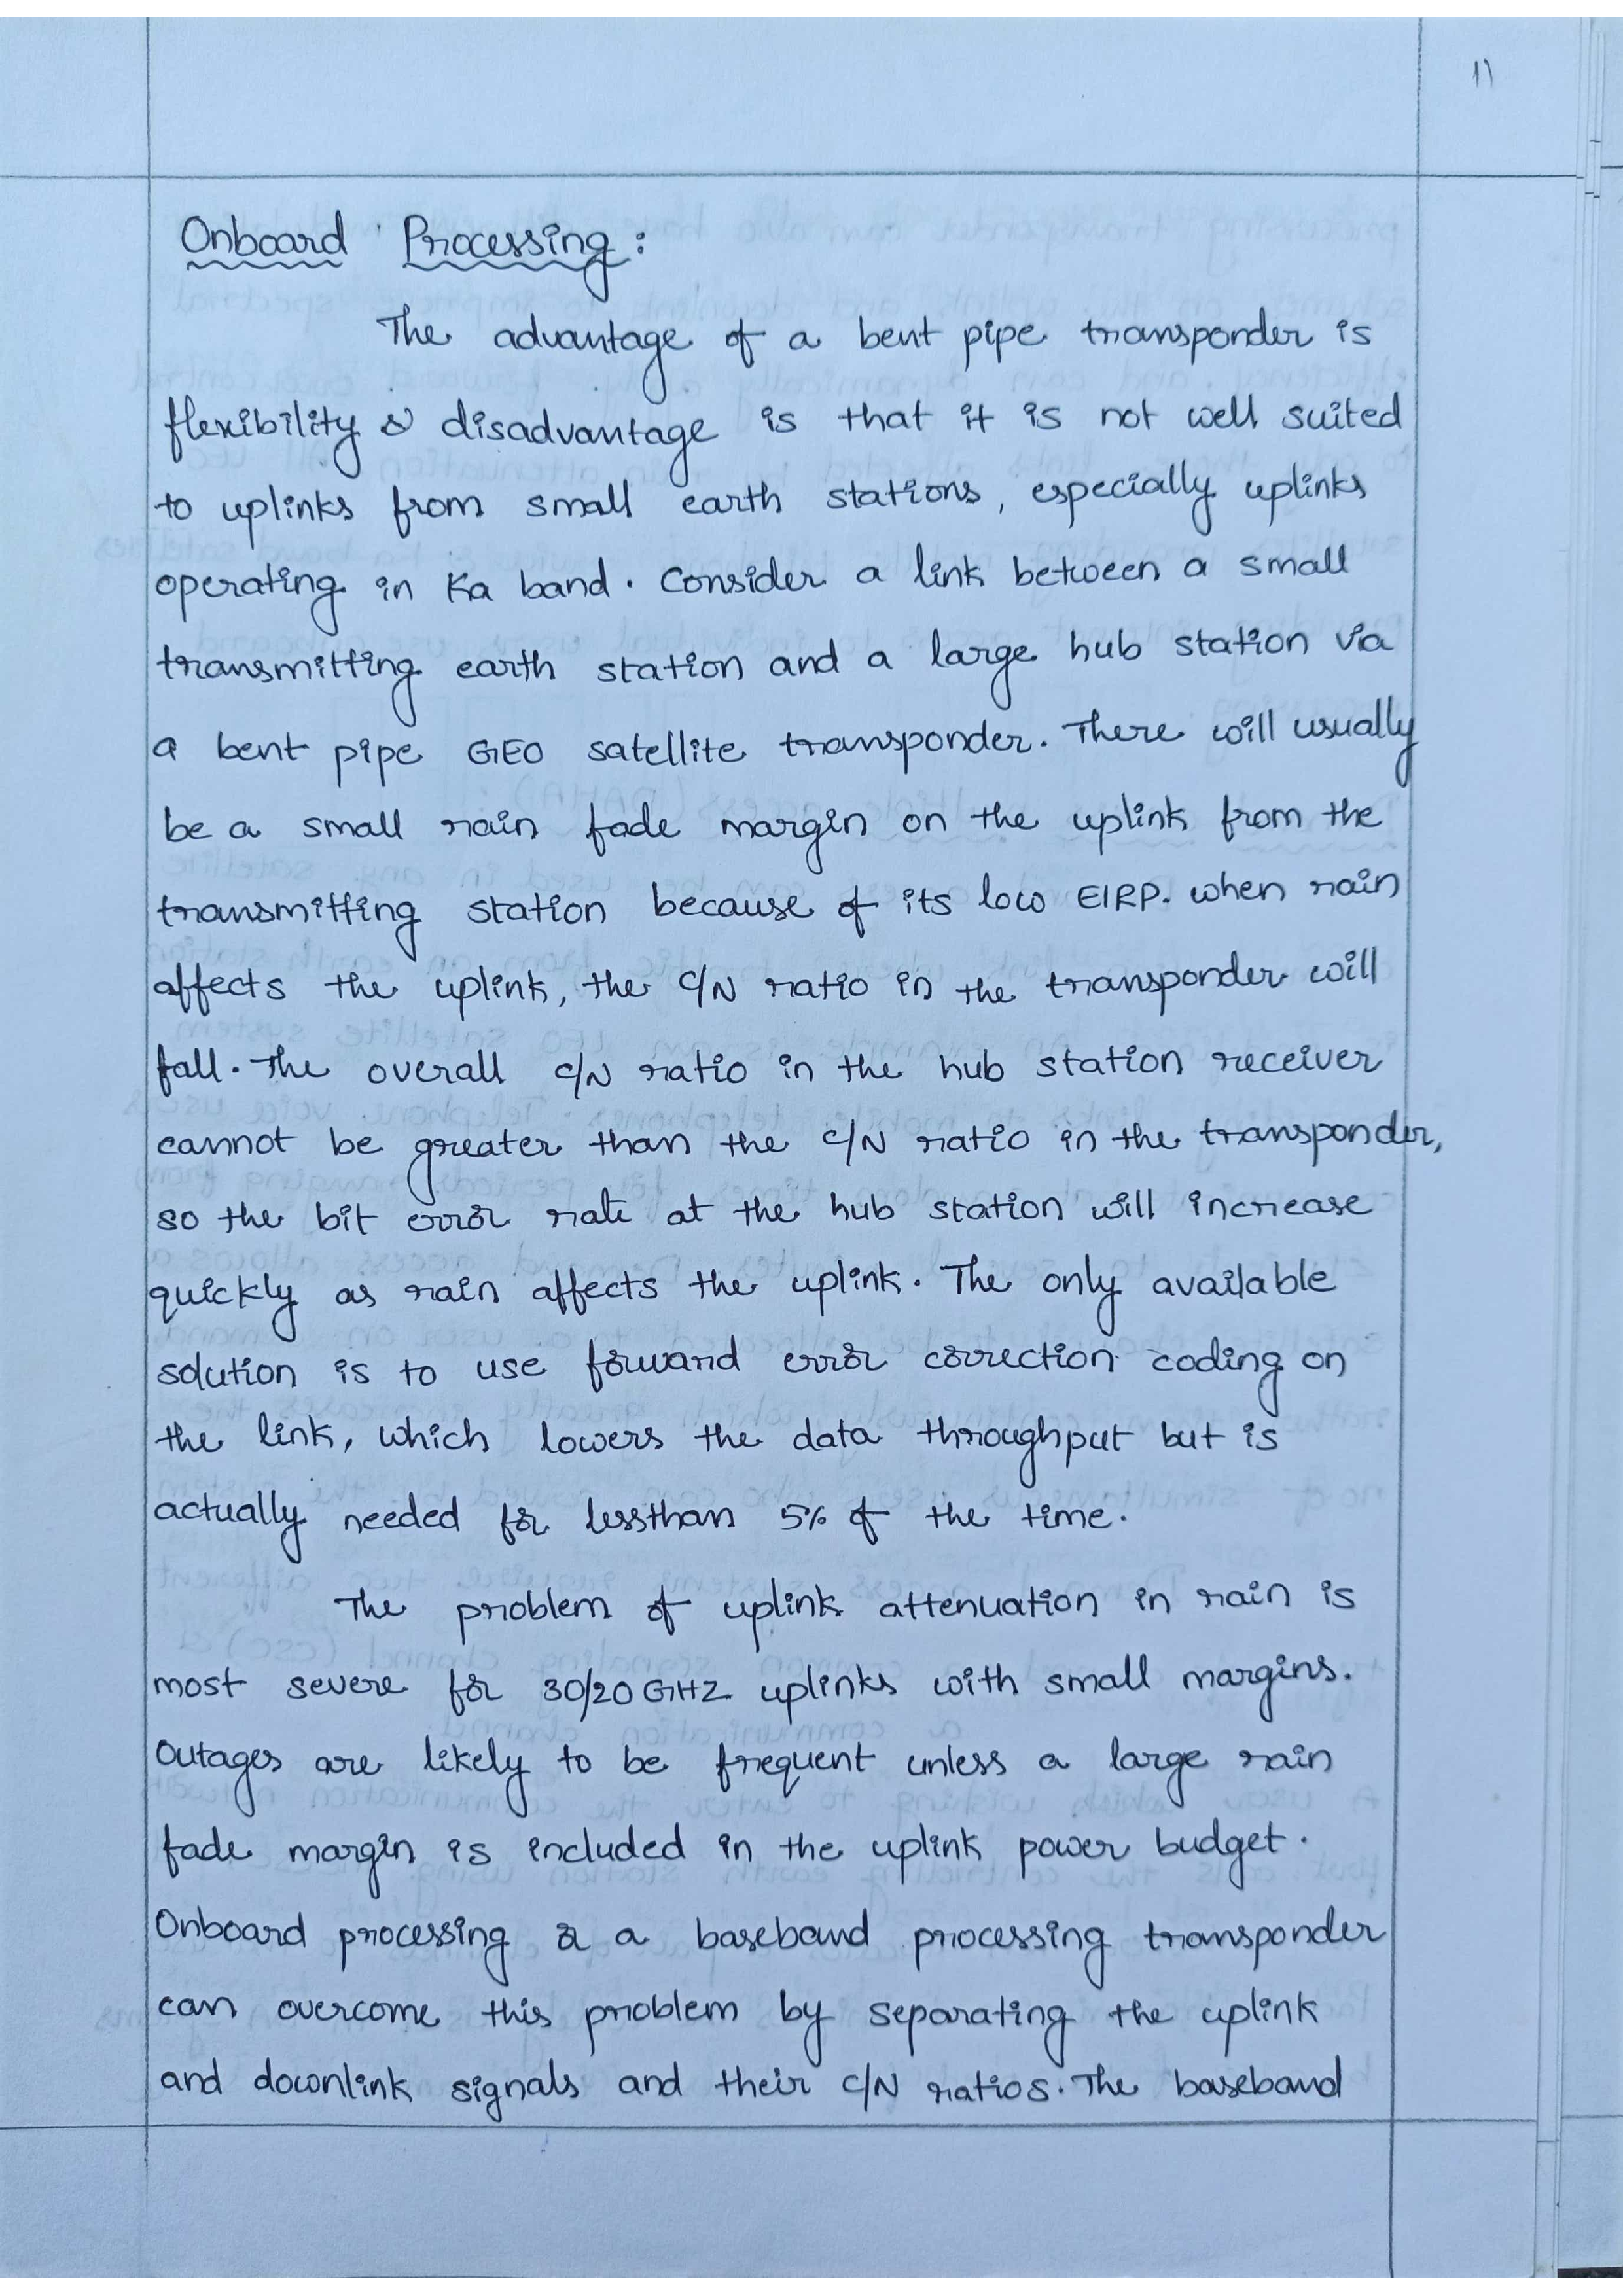 11
Onboard Processing :
The advantage of a bent pipe transponder is
flexibility & disadvantage is that it is not well suited
to uplinks from small earth stations, especially uplinks
operating in Ka band. Consider a link between a small
transmitting earth station and a large hub station via
a bent pipe GEO satellite transponder. There will usually
be a small rain fade margin on the uplink from the
transmitting station because of its low EIRP. when rain
affects the uplink, the C/N ratio in the transponder will
fall. The overall C/N ratio in the hub station receiver
cannot be greater than the C/N ratio in the transponder,
so the bit error rate at the hub station will increase
quickly as rain affects the uplink. The only available
solution is to use forward error correction coding on
the link, which lowers the data throughput but is
actually needed for lessthan 5% of the time.
The problem of uplink attenuation in rain is
most severe for 30/20 GHZ uplinks with small margins.
Outages are likely to be frequent unless a large rain
fade margin is included in the uplink power budget.
Onboard processing & a baseband processing transponder
can overcome this problem by separating the uplink
and downlink signals and their C/N ratios. The baseband